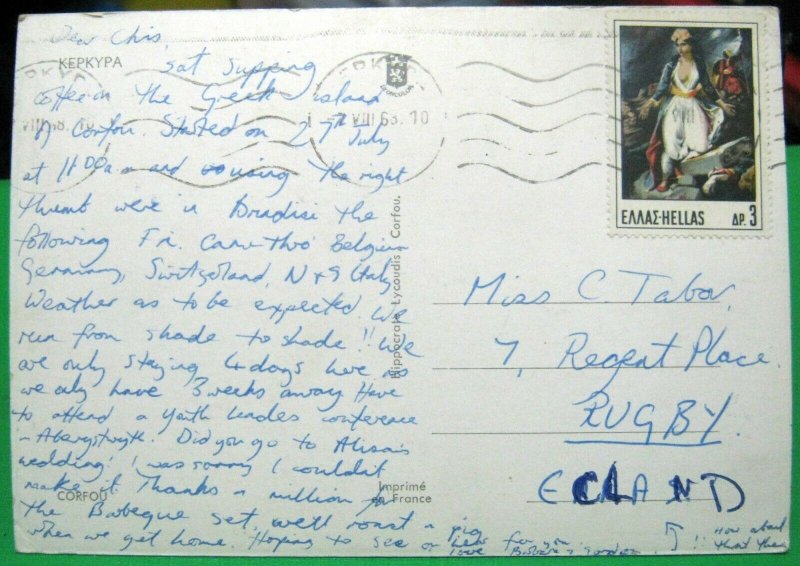 Dear Chis,
ΚΕΡΚΥΡΑ
Sat supping
coffee in the Greek island
of Corfou. Started on 27th July
at 11.00am and using the right
thumb were in Brindisi the
following Fri. Came thro Belgium
Germany, Switzerland, N & S Italy
Weather as to be expected. We
run from shade to shade!! We
are only staying 4 days here as
we only have 3 weeks away. Have
to attend a Youth leaders conference
in Aberystwyth. Did you go to Alison's
wedding? I was sorry I couldn't
make it. Thanks a million for
the Babeque set, we'll roast a pig
when we get home. Hoping to see or hear for you.
love Barbara & Gordon
CORFOU
Imprimé
en France
Hippocrate Lycoudis Corfou.
VIII 68. 10
VIII 68. 10
ΕΛΛΑΣ-HELLAS ΔΡ. 3
Miss C. Tabor,
7, Regent Place
RUGBY.
ECLAND
!! How about
that then